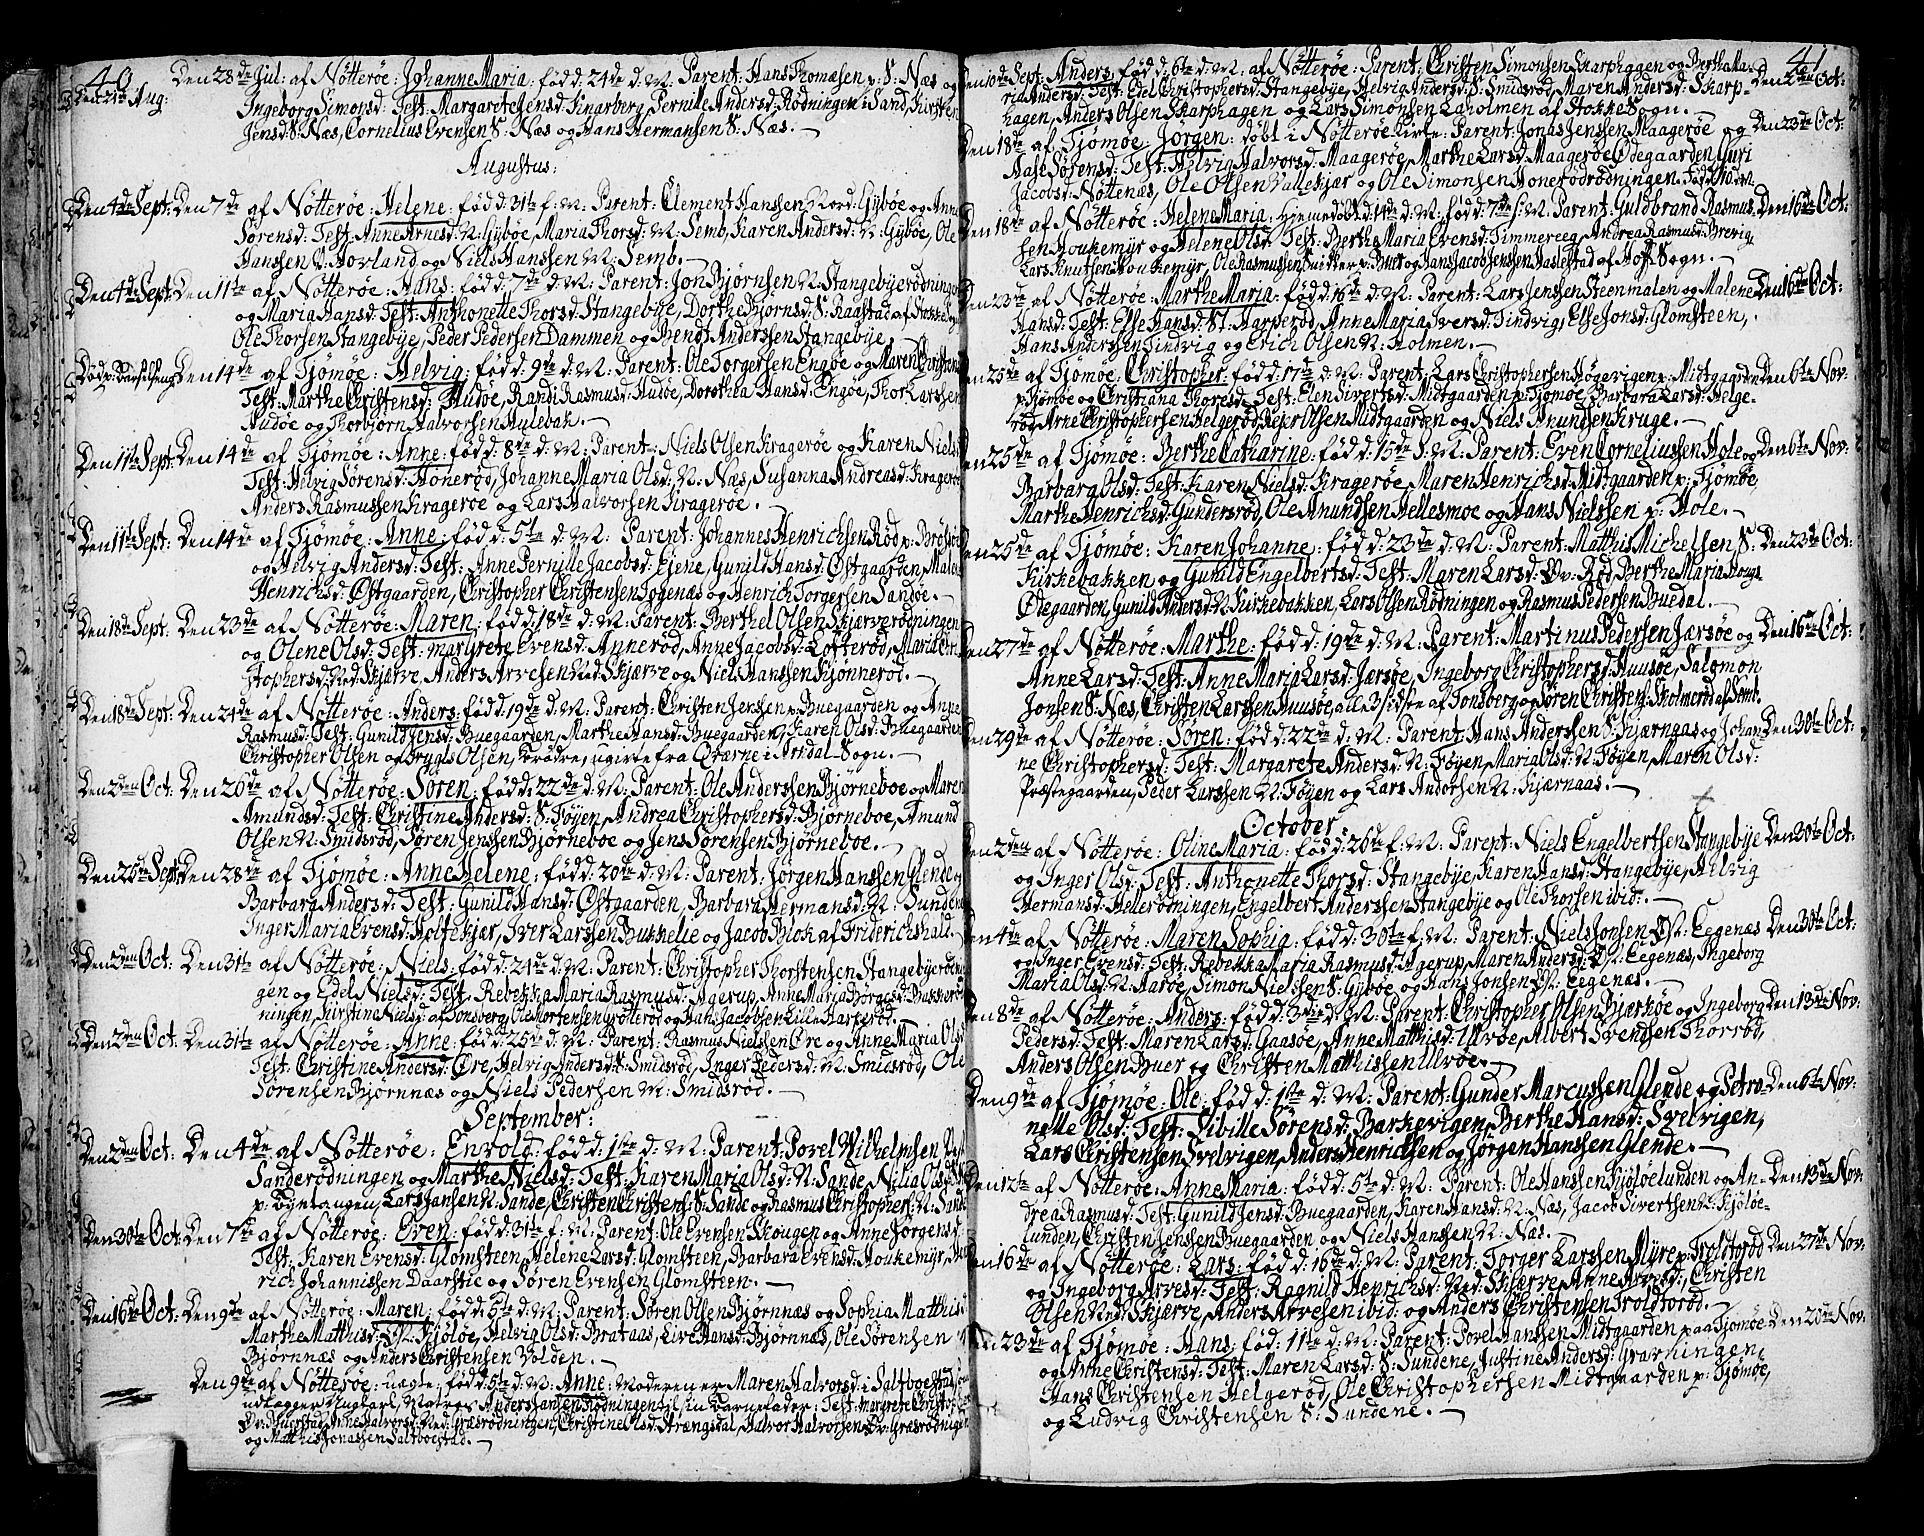 40
Den 28de Jul: af Nøtterøe: Johanne Maria: född: 24de d: M: Parent: Hans Thomæsen p: S: Næs og
Den 21de Aug:
Ingeborg Simonsd: Test: Margarete Jensd: Pernille Andersd: Rødningen i Sand, Kirsten
Jensd: S: Næs, Cornelius Evensen S: Næs og Hans Hermansen S: Næs.
Augustus:
Den 4de Sept: Den 7de af Nøtterøe: Helene: född: 31te f: M: Parent: Clement Hanssen Nord: Gÿbøe og Anne
Sørensd: Test: Anne Arnesd: N: Gÿbøe, Maria Thorsd: N: Semb, Karen Andersd: N: Gÿbøe, Ole
Hanssen V: Hovland og Niels Hanssen N: Semb.
Den 4de Sept: Den 11te af Nøtterøe: Hans: född: 7de d: M: Parent: Jon Bjørnsen N: Stangebÿerødningen
og Maria Hansd: Test: Anthonette Thorsd: Stangebÿe, Dorthe Bjørnsd: S: Raastad af Stokke
Ole Thorsen Stangebÿe, Peder Pedersen Dammen og Bendt Anderssen Stangebÿe.
Død p: Barselseng Den 14de af Tjømøe: Helvig: född: 9de d: M: Parent: Ole Torgersen Engøe og Maren Christensd:
Test: Marthe Christensd: Hudøe, Randi Rasmusd: Hudøe, Dorothea Hansd: Engøe, Thor Larssen
Hudøe og Thorbjørn Halvorsen Hulebak.
Den 11te Sept: Den 14de af Tjømøe: Anne: född: 8de d: M: Parent: Niels Olsen Kragerøe og Karen Nielsd:
Test: Helvig Sørensd: Honerød, Johanne Maria Olsd: N: Næs, Susanna Andreasd: Kragerøe
Anders Rasmussen Kragerøe og Lars Halvorsen Kragerøe.
Den 11te Sept: Den 14de af Tjømøe: Anne: född: 5te d: M: Parent: Johannes Henrichsen Rød p: Brøtsøe
og Helvig Andersd: Test: Anne Pernille Jacobsd: Ejene, Gunild Hansd: Østgaarden, Malene
Henrichsd: Østgaarden, Christopher Christensen og Henrich Torgersen Sandøe.
Den 18de Sept: Den 23de af Nøtterøe: Maren: född: 18de d: M: Parent: Berthel Olsen Skjærverødningen
og Olene Olsd: Test: Margrete Evensd: Annerød, Anne Jacobsd: Lofterød, Maria Chri-
stophersd: Ned: Skjærve, Anders Arvesen Ned: Skjærve og Niels Hanssen Kjønnerød.
Den 18de Sept: Den 24de af Nøtterøe: Anders: född: 19de d: M: Parent: Christen Jenssen p: Buegaarden og Anne
Rasmusd: Test: Gunild Jensd: Buegaarden, Marthe Hansd: Buegaarden, Karen Olsd: Buegaarden
Christopher Olsen og Trygls Olsen, brødre, ugivte fra i Arndal Sogn.
Den 2den Oct: Den 26de af Nøtterøe: Søren: född: 22de d: M: Parent: Ole Anderssen Bjørneboe og Maren
Amundsd: Test: Christine Andersd: S: Føÿen, Andrea Christophersd: Bjørneboe, Amund
Olsen N: Smidsrød, Søren Jenssen Bjørneboe og Jens Sørensen Bjørneboe.
Den 25de Sept: Den 28de af Tjømøe: Anne Helene: född: 20de d: M: Parent: Jørgen Hanssen Glende og
Barbara Andersd: Test: Gunild Hansd: Østgaarden, Barbara Hermansd: N: Sundene
Inger Maria Evensd: Holtekjær, Iver Larssen Bukkelie og Jacob Blok af Friderichshald.
Den 2den Oct: Den 31te af Nøtterøe: Niels: född: 21de d: M: Parent: Christopher Thorstensen Stangebÿerødnin-
gen og Edel Nielsd: Test: Rebekka Maria Rasmusd: Agerup, Anne Maria Børgesd: Bakkerød-
ningen, Kirstina Nielsd: af Tønsberg, Ole Mortensen Grøtterød og Hans Jacobsen Lille Harperød.
Den 2den Oct: Den 31te af Nøtterøe: Anne: född: 25de d: M: Parent: Rasmus Nielssen Ore og Anne Maria Olsd:
Test: Christine Andersd: Ore, Helvig Andersd: S: Smidsrød, Inger Pedersd: N: Smidsrød, Ole
Sørensen Bjørnnæs og Niels Pedersen N: Smidsrød.
September:
Den 2den Oct: Den 4de af Nøtterøe: Envold: född: 1ste d: M: Parent: Povel Wilhelmsen
Sanderødningen og Marthe Nielsd: Test: Karen Maria Olsd: N: Sande, Nilia Olsd:
p: Bÿetangen, Lars Jansen N: Sande, Christen Christens: S: Sande og Rasmus Christophers: N: Sande
Den 30te Oct: Den 7de af Nøtterøe: Even: född: 31te f: M: Parent: Ole Evensen Skougen og Anne Jørgensd:
Test: Karen Evensd: Glomsteen, Helene Larsd: Glomsteen, Barbara Evensd: Houkemÿr,
rich Johannissen Daarstie og Søren Evensen Glomsteen.
Den 16de Oct: Den 9de af Nøtterøe: Maren: född: 5te d: M: Parent: Søren Olsen Bjørnnæs og Sophia Matthisd:
Marthe Matthisd: Ø: Kjøløe, Helvig Olsd: Brataas, Live Hansd: Bjørnnæs, Ole Sørensen
Bjørnnæs og Anders Christensen Volden.
Den 9de af Nøtterøe: uægte, född: 5te d: M: Anne: Moderen er Maren Halvorsd: i Saltboestad,
udlægger Ungkarl, Matros Anders Jansen Rødningen til sin Barnefader: Test: Margrete Christophersd:
Anne Halvorsd: Ned: Græsrødningen, Christine Olsd: Strængsdal, Halvor Halvorsen Ov: Græsrødningen
og Matthis Jonassen Saltboestad.
41
Den 10de Sept: Anders: född: 6te d: M: af Nøtterøe: Parent: Christen Simonsen Skarphagen og Berthe Ma- Den 2den Oct:
ria Andersd: Test: Edel Christophersd: Stangebÿe, Helvig Andersd: S: Smidsrød, Maren Andersd: Skarp-
hagen, Anders Olsen Skarphagen og Lars Simonsen Laholmen af Stokke Sogn.
Den 18de af Tjømøe: Jørgen: døbt i Nøtterøe Kirke: Parent: Jonas Jenssen Maagerøe og Den 23de Oct:
Aase Sørensd: Test: Helvig Halvorsd: Maagerøe, Marthe Larsd: Maagerøe Ødegaarden, Guri
Jacobsd: Nøttenæs, Ole Olsen Vallekjær og Ole Simonsen Honerødrødningen.
Den 18de af Nøtterøe: Helene Maria: Hjemedøbt d: 14de d: M: född: 7de f: M: Parent: Guldbrand Rasmus- Den 16de Oct:
sen Houkemÿr og Helene Olsd: Test: Berthe Maria Evensd: Timmereeg, Andrea Rasmusd: Brevig,
Lars Knutsen Houkemÿr, Ole Rasmussen Snikker p: Buer og Hans Jacob Jenssen Haslestad af Hoff Sogn.
Den 23de af Nøtterøe: Marthe Maria: född: 18de d: M: Parent: Lars Jenssen Steenmalen og Malene Den 16de Oct:
Hansd: Test: Else Hansd: St: Harperød, Anne Maria Iversd: Tindvig, Else Jonsd: Glomsteen,
Hans Anderssen Tindvig og Erich Olsen N: Holmen.
Den 25de af Tjømøe: Christopher: född: 17de d: M: Parent: Lars Christophersen Høgevigen p: Midtgaarden Den 6te Nov:
p: Tjømøe og Christiana Thoresd: Test: Elen Sivertsd: Midtgaarden p: Tjømøe, Barbara Larsd: Helge-
rød, Arne Christophersen Helgerød, Rejer Olsen Midtgaarden og Niels Anundsen Kruge.
Den 25de af Tjømøe: Berthe Catharine: född: 15de d: M: Parent: Even Corneliussen Hole og Den 6te Nov:
Barbara Olsd: Test: Karen Nielsd: Kragerøe, Maren Henrichsd: Midtgaarden p: Tjømøe,
Marthe Henrichsd: Gundersrød, Ole Anundsen Hellesmoe og Hans Nielssen p: Hole.
Den 25de af Tjømøe: Karen Johanne: född: 23de d: M: Parent: Matthis Michelsen S: Den 23de Oct:
Kirkebakken og Gunild Engelbertsd: Test: Maren Larsd: Ov: Rød, Berthe Maria
Ødegaarden, Gunild Andersd: N: Kirkebakken, Lars Olsen Rødningen og Rasmus Pedersen Buedal.
Den 27de af Nøtterøe: Marthe: född: 19de d: M: Parent: Martinus Pedersen Jærsøe og Den 16de Oct:
Anne Larsd: Test: Anne Maria Larsd: Jærsøe, Ingeborg Christophersd: Huusøe, Salomon
Jonsen S: Næs, Christen Larssen Huusøe, alle 3 sidste af Tønsberg og Søren Christens: Skolmerød af Semb.
Den 29de af Nøtterøe: Søren: född: 22de d: M: Parent: Hans Anderssen S: Kjærnaas og Johan- Den 30te Oct:
ne Christophersd: Test: Margarete Andersd: N: Føÿen, Maria Olsd: N: Føÿen, Maren Olsd:
Præstegaarden, Peder Larssen N: Føÿen og Lars Andorsen N: Kjærnaas.
October:
Den 2den af Nøtterøe: Oline Maria: född: 26de f: M: Parent: Niels Engelbertsen Stangebÿe Den 30te Oct:
og Inger Olsd: Test: Anthonette Thorsd: Stangebÿe, Karen Hansd: Stangebÿe, Helvig
Hermansd: Hellerødningen, Engelbert Anderssen Stangebÿe og Ole Thorsen ibid:
Den 4de af Nøtterøe: Maren Sophia: född: 30te f: M: Parent: Niels Jonsen Ø: Eegenæs Den 30te Oct:
og Inger Evensd: Test: Rebekka Maria Rasmusd: Agerup, Maren Andersd: Ø: Eegenæs, Ingeborg
Maria Olsd: N: Aarøe, Simon Nielsen S: Gÿbøe og Hans Jonsen Ø: Eegenæs.
Den 8de af Nøtterøe: Anders: född: 3die d: M: Parent: Christopher Olsen Bjerkøe og Ingeborg Den 13de Nov:
Pedersd: Test: Maren Larsd: Gaasøe, Anne Matthisd: Ulvøe, Albert Svendsen Thorrød,
Anders Olsen Buer og Christen Matthissen Ulvøe.
Den 9de af Tjømøe: Ole: född: 1ste d: M: Parent: Gunder Marcussen Glende og Petro- Den 6te Nov:
nelle Olsd: Test: Sibille Sørensd: Barkevigen, Berthe Hansd: Svelvigen,
Lars Christensen Svelvigen, Anders Henrichsen og Jørgen Hanssen Glende.
Den 12te af Nøtterøe: Anne Maria: född: 5te d: M: Parent: Ole Hanssen Kjøløelunden og An- Den 13de Nov:
drea Rasmusd: Test: Gunild Jensd: Buegaarden, Karen Hansd: N: Næs, Jacob Sivertsen N: Kjøløe-
lunden, Christen Jenssen Buegaarden og Niels Hanssen N: Næs.
Den 16de af Nøtterøe: Lars: född: 16de d: M: Parent: Torger Larssen Mÿre p: Troldtorød Den 27de Nov:
og Ingeborg Arvesd: Test: Ragnild Henrichsd: Ned: Skjærve, Anne Arvesd:, Christen
Olsen Ned: Skjærve, Anders Arvesen ibid: og Anders Christensen Troldtorød.
Den 23de af Tjømøe: Hans: föd: 11te d: M: Parent: Povel Hanssen Midtgaarden paa Tjømøe Den 20de Nov:
og Anne Christensd: Test: Maren Larsd: S: Sundene, Justine Andersd: Gravningen,
Hans Christensen Helgerød, Ole Christophersen Midtgaarden p: Tjømøe,
og Ludvig Christensen S: Sundene.